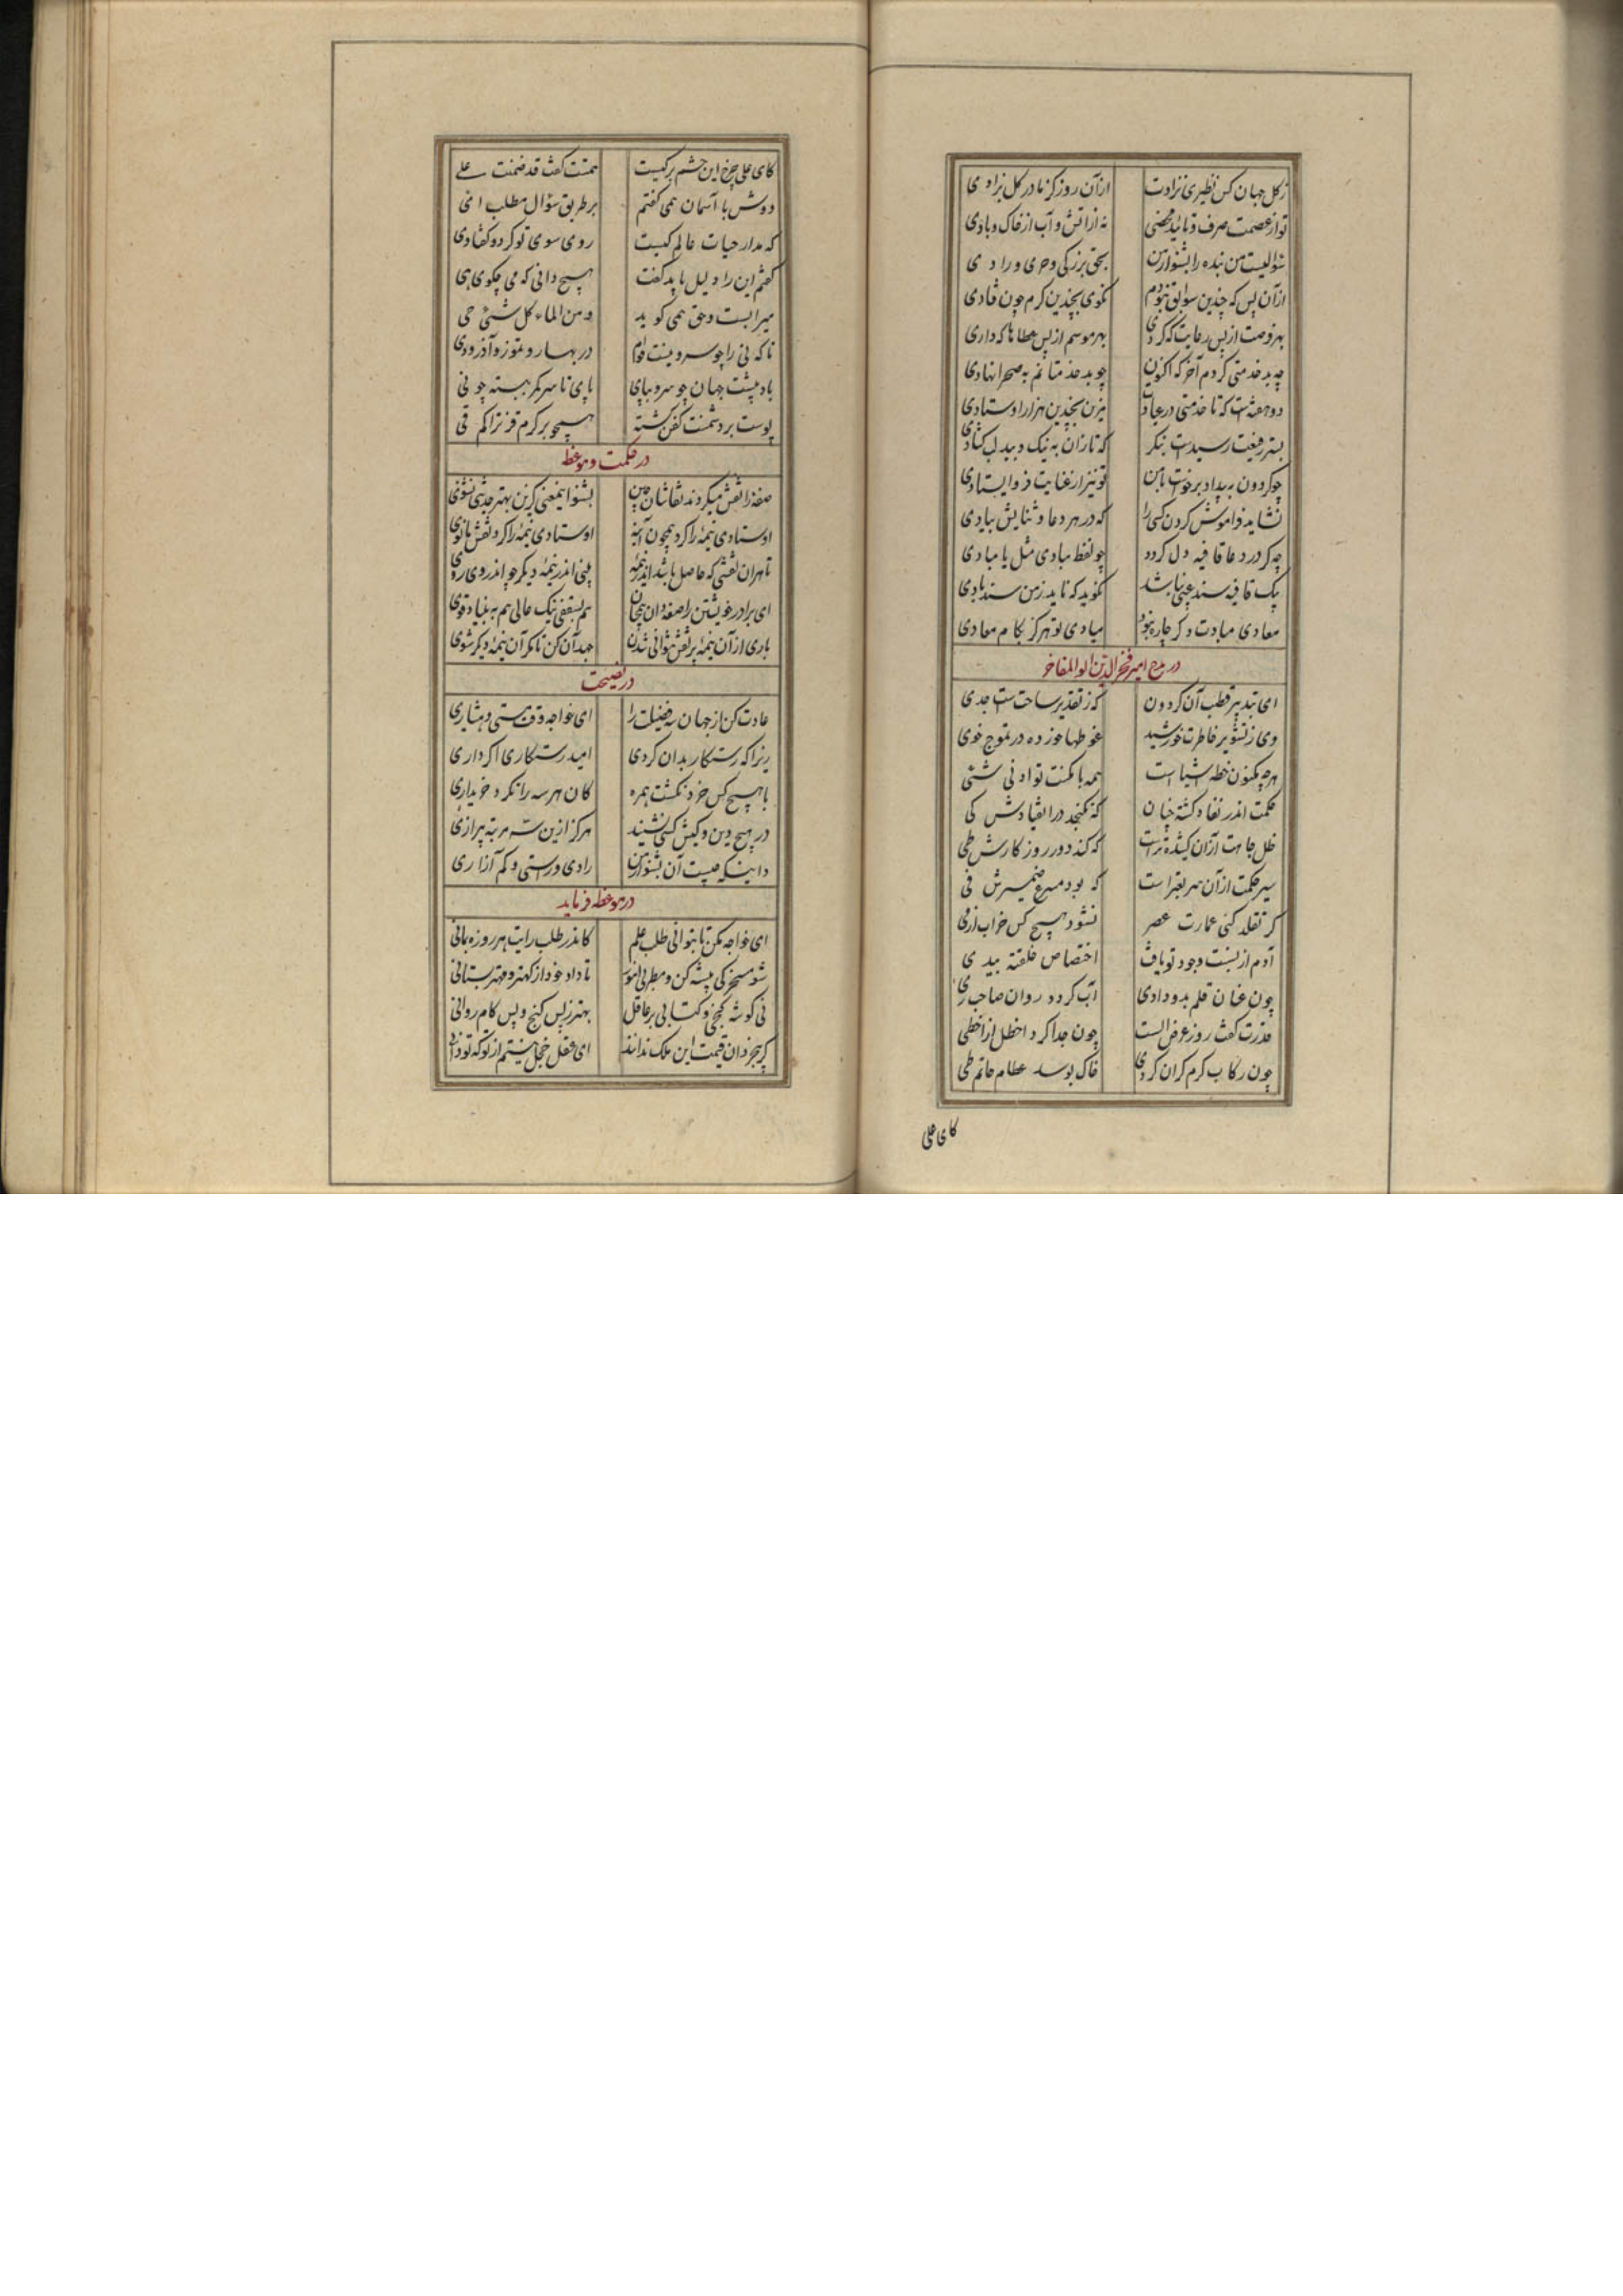 ز کل جهان کس نظیری نزادت از آن روز کز مادر کل بزادی
تو از عصمت صرف و تایید محضی نه از آتش و آب از خاک و بادی
سؤالیست من بنده را بشنو از من بحق بزرکی و حری و رادی
از آن پس که چندین سوابق نبودم نکوی بچندین کرم چون فتادی
بهر فرصت از بس رعایت که کردی بهر موسم از بس عطاها که دادی
چه بد خدمتی کردم آخر که اکنون چو بد خدمتانم به صحرا نهادی
دو هفته است که تا خدمتی در عیادت بزن بچندین هزار اوستادی
بتشریفت رسیدست بنکر که تا زان به نیک و بد لب کشادی
چو کردون به بیداد برخوت با من تو نیز از عنایت فرو ایستادی
نشاید فراموش کردن کسی را که در هر دعا و ثنایش بیادی
چه کر در دعا قافیه دل کردد چو لفظ مبادی مثل یا مبادی
یک قافیه سند چنین باشد نکوید که ناید ز من سندبادی
معادی مبادت و کر چاره نبود مبادی تو هرکز بکام معادی
در مدح امیر فخرالدین ابوالمفاخر
ای بتدبیر قطب آن کردون که ز تقدیر ساحت ست جدی
وی ز تشویر خاطرت خورشید غوطها خورده در تموج خوی
هرچه مکنون خطه اشیا است همه با مکنت تو ادنی شئی
حکمت اندر نفاذ کشته چنان که نکنجد در انقیادش کی
ظل جاهت از آن کشیده تر است که کند دور روزکارش طی
سیر حکمت از آن سریعتر است که بود مسرع ضمیرش فی
کر تقلد کنی عمارت عصر نشود هیچ کس خراب از می
آدم از نسبت وجود تو یافت اختصاص خلقته بیدی
چون عنان قلم بدو دادی آب کردد روان صاحب ری
قدرت کفت روز عرض الست چون جدا کرد اخطل از اخطی
چون رکاب کرم کران کردی خاک بوسد عظام حاتم طی
کای علی
کای علی چرخ این حشم بر کیست همتت کفت قد ضمنت علی
دوش با آسمان همی کفتم بر طریق سؤال مطلب ای
که مدار حیات عالم کیست روی سوی تو کرد و کفتا وی
کفتم این را دلیل باید کفت هیچ دانی که می چکوی هی
میر ابست و حق همی کوید و من الماء کل شئی حی
تا که نی را چو سرو نیست قوام در بهار و تموز و آذر و دی
باد پیشت جهان چو سرو بپای پای تا سر کمر ببسته چو نی
پوست بر دشمنت کفن کشته همچو بر کرم قز تراکم قی
در حکمت و موعظه
صفه را نقش میکردند نقاشان چین بشنو این معنی کزین بهتر حدیثی نشنوی
اوستادی نیمهٔ را کرد همچون آینه اوستادی نیمهٔ را کرد نقش مانوی
تا هران نقشی که حاصل باشد اندر نیمهٔ بینی اندر نیمهٔ دیکر چو اندر وی روی
ای برادر خویشتن را صفهٔ دان همچنان هم بسقفی نیک عالی هم به بنیاد قوی
باری از آن نیمهٔ پر نقش نتوانی شدن جهد آن کن تا مکر آن نیمهٔ دیکر شوی
در نصیحت
عادت کن از جهان سه فضیلت را ای خواجه وقت مستی و هشیاری
زیرا که رستکار بدان کردی امید رستکاری اکر داری
با هیچ کس خرد نکشت همره کان هر سه را نکرد خریداری
در هیچ دین و کیش کسی نشنید هرکز ازین سه مرتبه بیزاری
دانی که چیست آن بشنو از من رادی و راستی و کم آزاری
در موعظه فرماید
ای خواجه مکن تا بتوانی طلب علم کاندر طلب راتب هر روزه بمانی
شو مسخرکی پیشه کن و مطربی آموز تا داد خود از کهتر و مهتر بستانی
نی کوشه کنجی و کتابی بر عاقل بهتر ز بس کنج و بس کام روانی
کر بیخردان قیمت این ملک ندانند ای عقل خجل نیستم از تو که تو دانی